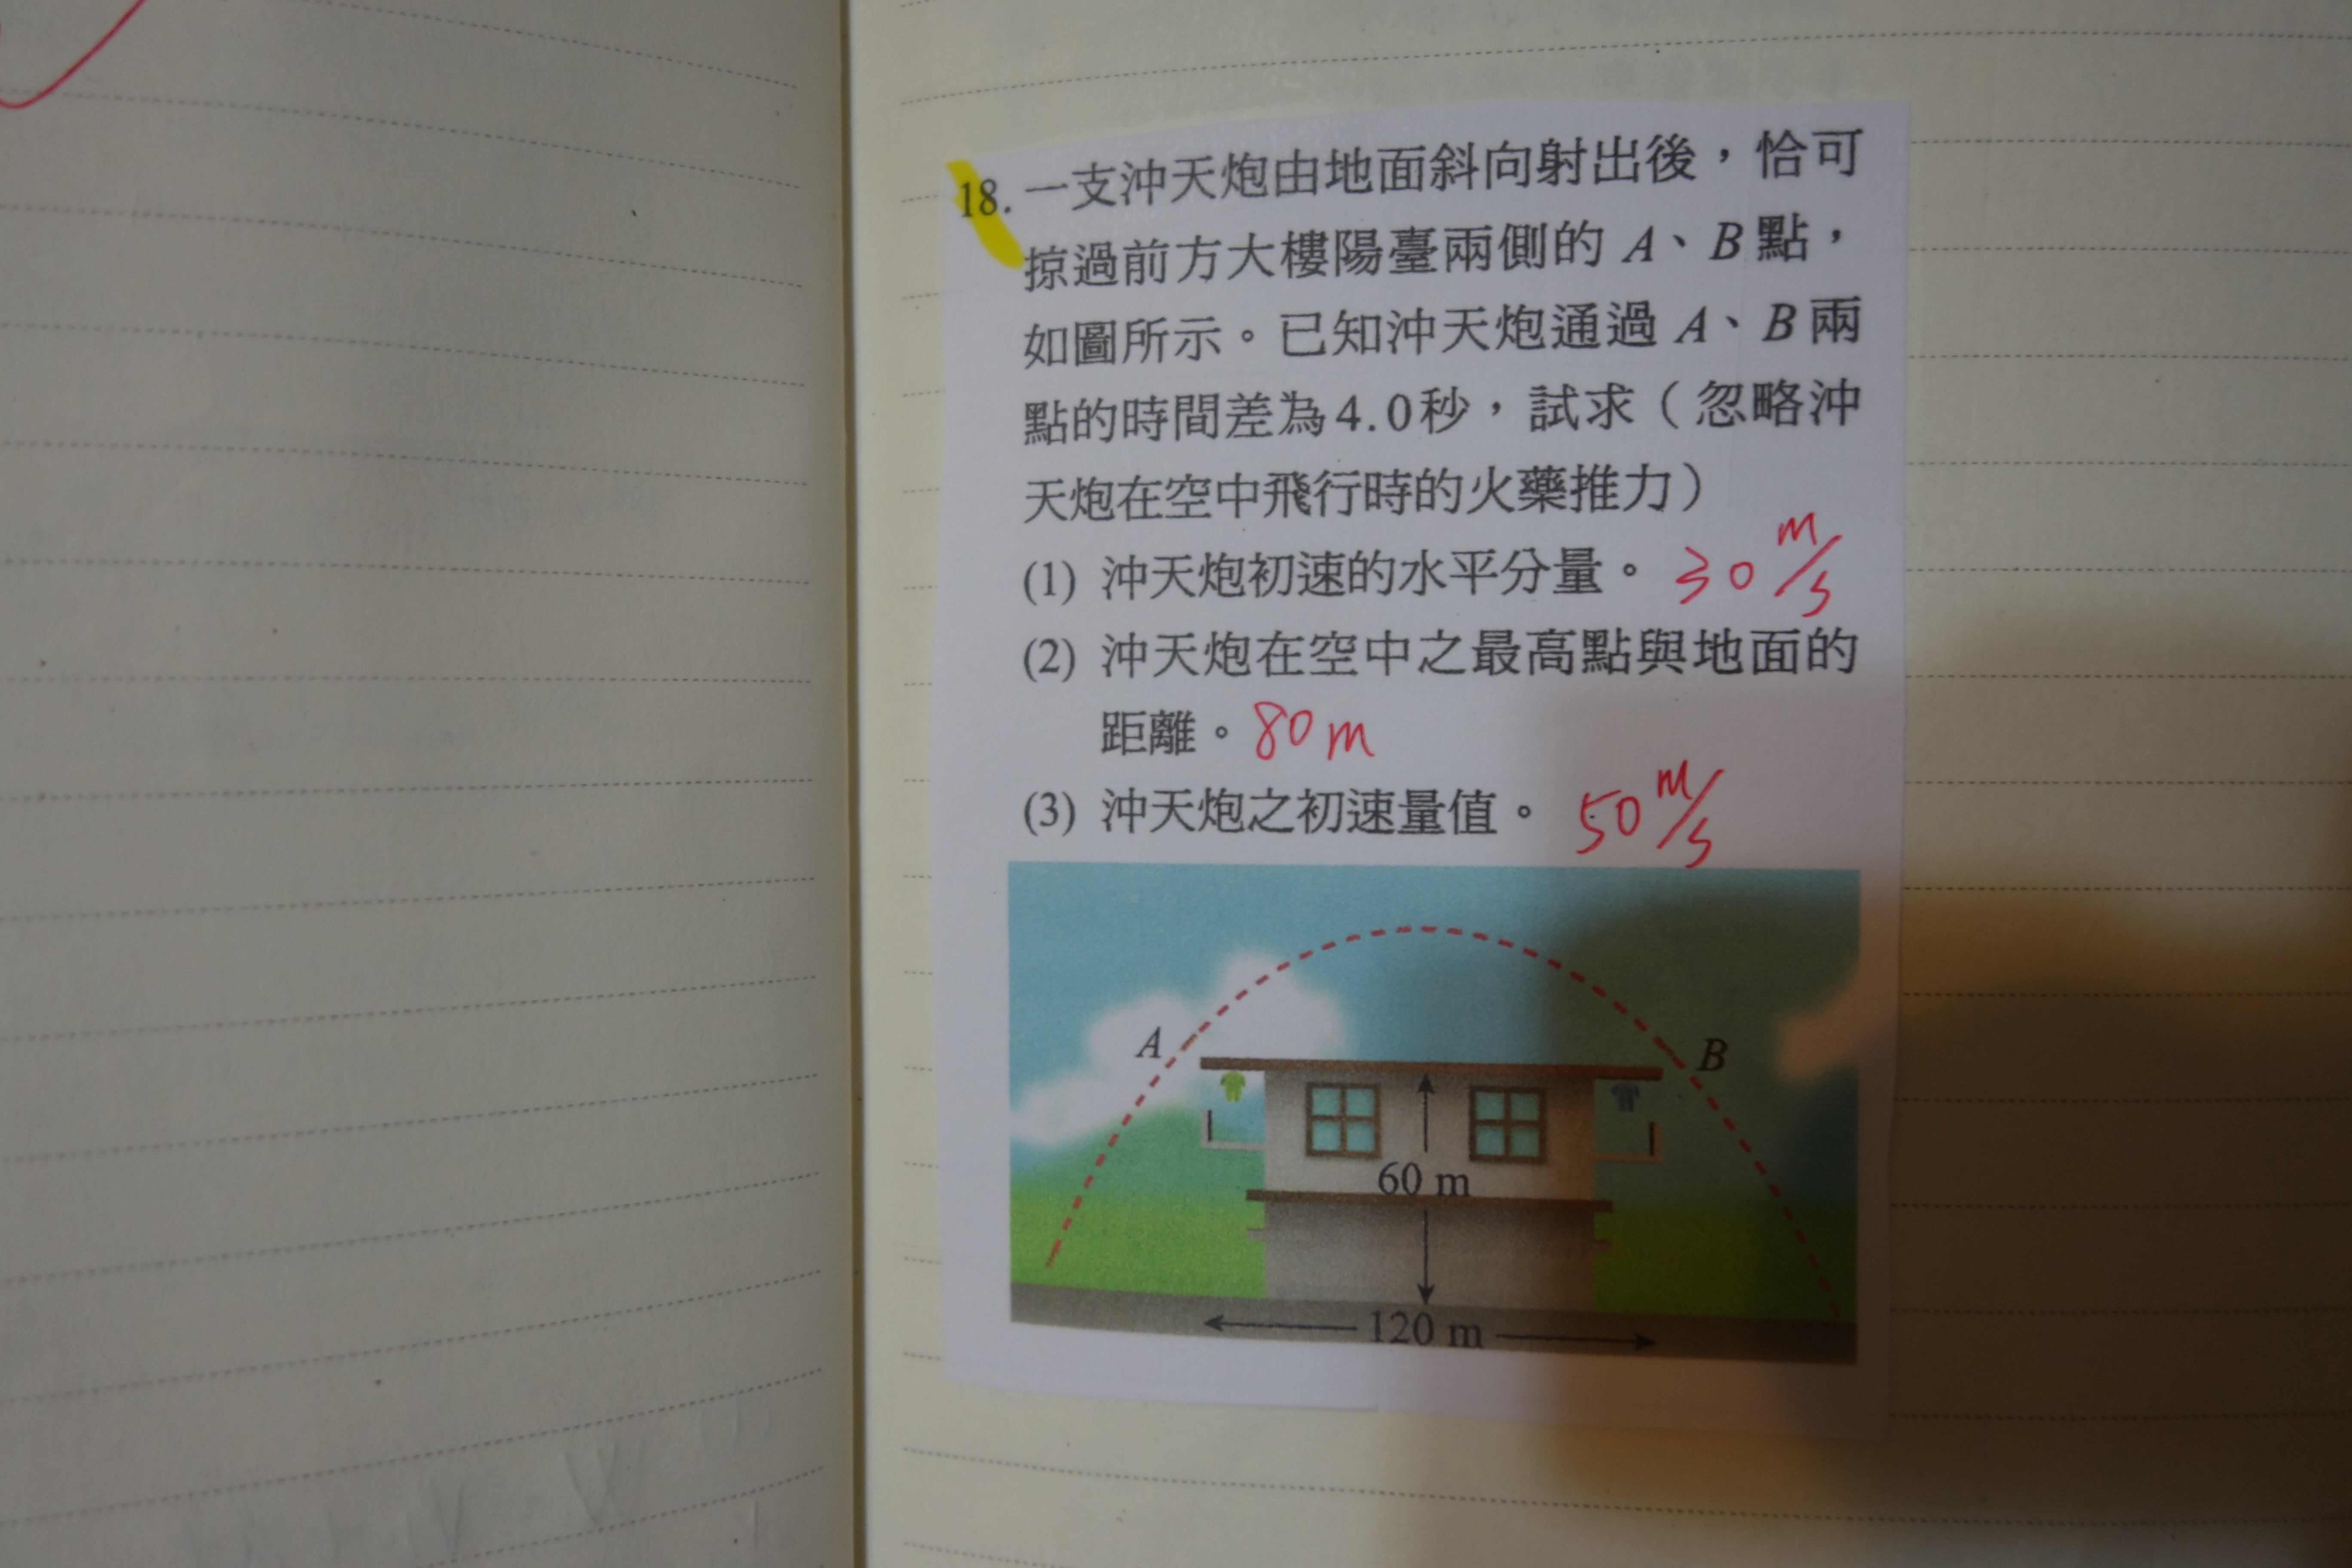 18. 一支沖天炮由地面斜向射出後，恰可
掠過前方大樓陽臺兩側的 A、B 點，
如圖所示。已知沖天炮通過 A、B 兩
點的時間差為4.0秒，試求（忽略沖
天炮在空中飛行時的火藥推力）
(1) 沖天炮初速的水平分量。 30 m/s
(2) 沖天炮在空中之最高點與地面的
距離。80 m
(3) 沖天炮之初速量值。 50 m/s
A
B
60 m
120 m